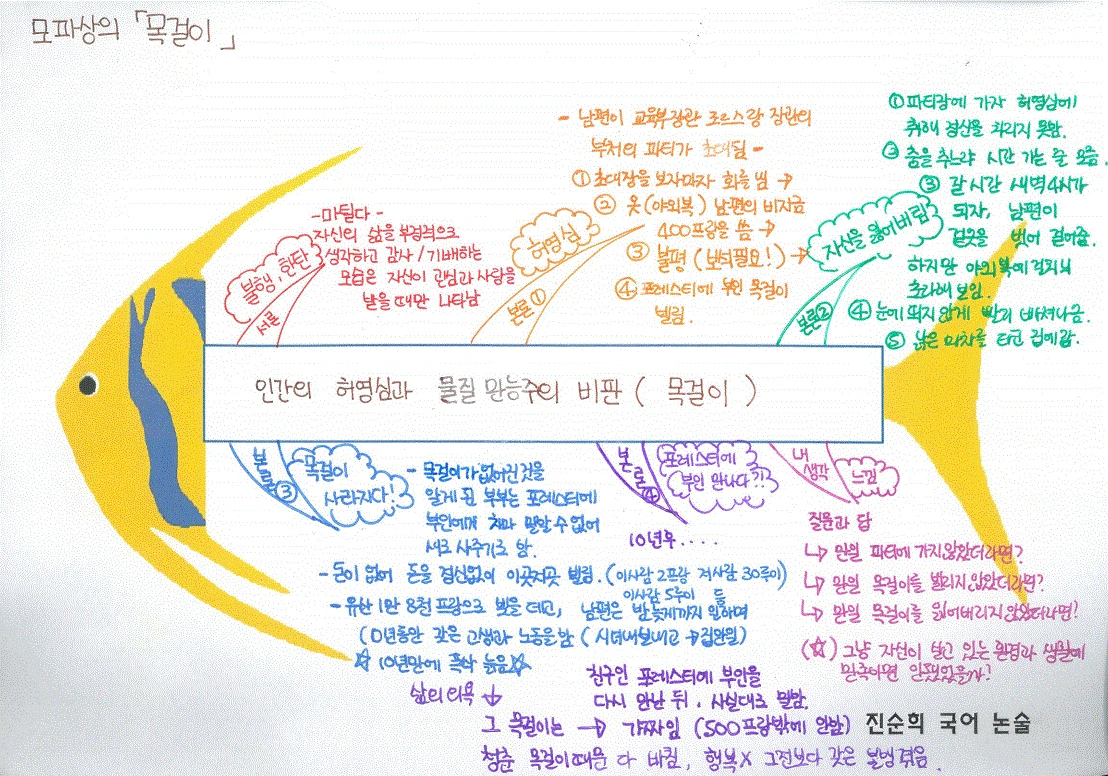 모파상의 「목걸이」
불행, 한탄
서론
-마틸다-
자신의 삶을 부정적으로
생각하고 감사/기뻐하는
모습은 자신이 관심과 사랑을
받을 때만 나타남
허영심
본론①
- 남편이 교육부장관 조르스랑 장관의
부처의 파티가 초대됨 -
① 초대장을 보자마자 화를 냄 →
② 옷(야외복) 남편의 비자금
400프랑을 씀 →
③ 불평 (보석필요!) →
④ 포레스티에 부인 목걸이
빌림.
자신을 잃어버림
본론②
① 파티장에 가자 허영심에
취해 정신을 차리지 못함.
② 춤을 추느라 시간 가는 줄 모름.
③ 갈시간 새벽4시가
되자, 남편이
겉옷을 벗어 걸어줌.
하지만 야외복에 걸치니
초라해 보임.
④ 눈에 띄지 않게 빨리 빠져나감.
⑤ 낡은 마차를 타고 집에감.
인간의 허영심과 물질 만능주의 비판 ( 목걸이 )
본론③
목걸이
사라지다!
- 목걸이가 없어진 것을
알게 된 부부는 포레스티에
부인에게 차마 말할 수 없어
새로 사주기로 함.
-돈이 없어 돈을 정신없이 이곳저곳 빌림. (이사람 2프랑 저사람 30루이)
이사람 5루이 등
- 유산 1만 8천 프랑으로 빚을 떼고, 남편은 밤늦게까지 일하며
10년동안 갖은 고생과 노동을 함 (시녀내보내고 → 집안일)
☆ 10년만에 폭삭 늙음☆
삶의 의욕 ↓
본론④
포레스티에
부인 만나다?!
10년후....
친구인 포레스티에 부인을
다시 만난 뒤, 사실대로 말함.
그 목걸이는 → 가짜임 (500프랑밖에 안함)
청춘 목걸이때문 다 바침, 행복X 그전보다 갖은 불행 겪음.
내
생각
느낌
질문과 답
↳ 만일 파티에 가지 않았더라면?
↳ 만일 목걸이를 빌리지 않았더라면?
↳ 만일 목걸이를 잃어버리지 않았더라면?
(☆) 그냥 자신이 살고 있는 환경과 생활에
만족하면 안됐었을까?
진순희 국어 논술